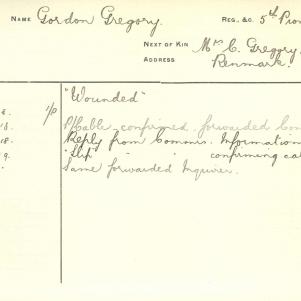 NAME Gordon Gregory. REG. &C. 5th Pion
NEXT OF KIN Mrs C. Gregory.
ADDRESS Renmark.
1/P "Wounded"
P/Cable confirmed forwarded Con
18. Reply from Commrs. Information
9. "Slip" " " confirming cab
Same forwarded Inquirer.